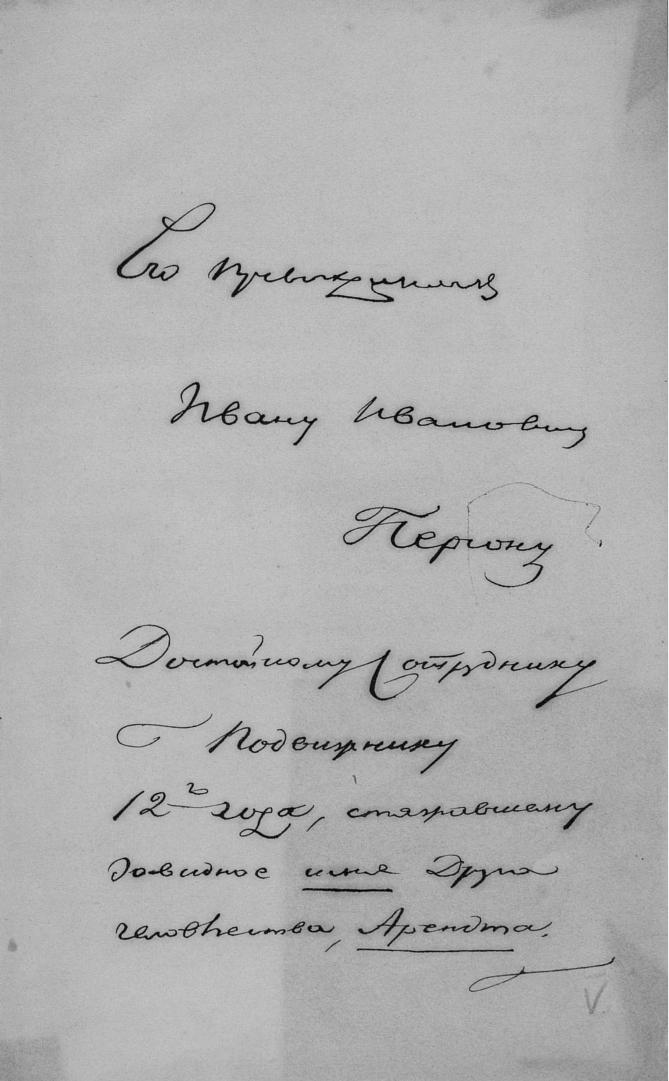 Его превосходительству
Ивану Ивановичу
Достойному Сотруднику
Подвижнику
12го года, стяжавшему
завидное имя Друга
человѣчества, Арендта.
V